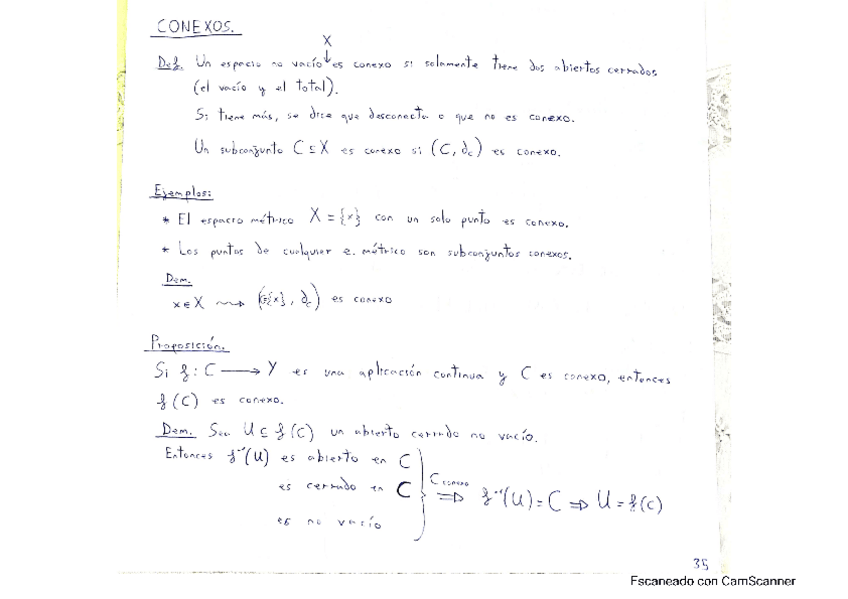 CONEXOS.
X
↓
Def. Un espacio no vacío es conexo si solamente tiene dos abiertos cerrados
(el vacío y el total).
Si tiene más, se dice que desconecta o que no es conexo.
Un subconjunto C ⊆ X es conexo si (C, d_c) es conexo.
Ejemplos:
* El espacio métrico X = {x} con un solo punto es conexo.
* Los puntos de cualquier e. métrico son subconjuntos conexos.
Dem.
x ∈ X ⇝ ({x}, d_c) es conexo
Proposición.
Si f : C ⟶ Y es una aplicación continua y C es conexo, entonces
f(C) es conexo.
Dem. Sea U ⊆ f(C) un abierto cerrado no vacío.
Entonces f⁻¹(U) es abierto en C
es cerrado en C
es no vacío
C conexo
⇒ f⁻¹(U) = C ⇒ U = f(C)
35
Escaneado con CamScanner